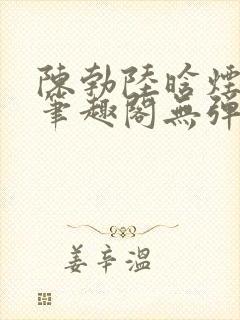 陳勃陸晗煙
筆趣閣無彈
姜辛溫